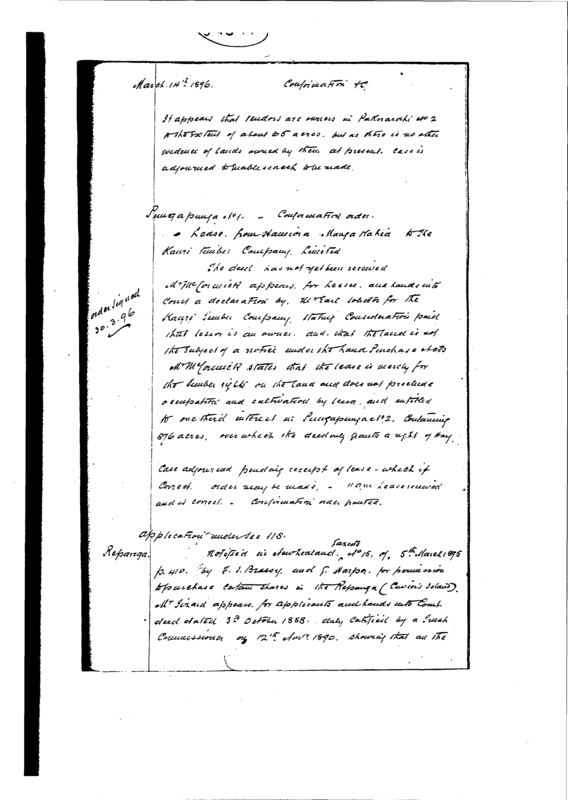 March 14th 1896. Confirmation &c.
It appears that vendors are owners in No 2
to the extent of about 65 acres. but as there is no other
evidence of lands owned by them at present. case is
adjourned to enable search to be made.
Pungapunga No 1. - Confirmation order.
Lease. from Hamiora Mangakahia to the
Kauri Timber Company, Limited
The deed has not yet been received
Mr McCormick appears. for Lessee. and hands into
Court a declaration by. Mr Earl solicitor for the
Kauri Timber Company. stating Consideration paid
that lessor is an owner. and. that the land is not
the subject of a notice under the Land Purchase Acts
order signed
30.3.96
Mr McCormick states that the lease is merely for
the timber rights on the land and does not preclude
occupation and cultivation by lessor. and entitled
to one third interest in Pungapunga No 2. containing
896 acres. over which the deed only grants a right of Way.
Case adjourned pending receipt of lease - which if
correct. order may be made. - Lease received
and is correct. - Confirmation order granted.
Application under Sec 118.
Repanga. Notified in New Zealand Gazette No 15. of. 5th March 1895
p. 410. by F. J. Brassey. and Harper. for permission
to purchase certain shares in the Repanga (Cuvier Island).
Mr appears. for applicants and hands into Court
deed dated 3rd October 1888. duly certified by a Trust
Commissioner on 12th Novr 1890. showing that all the